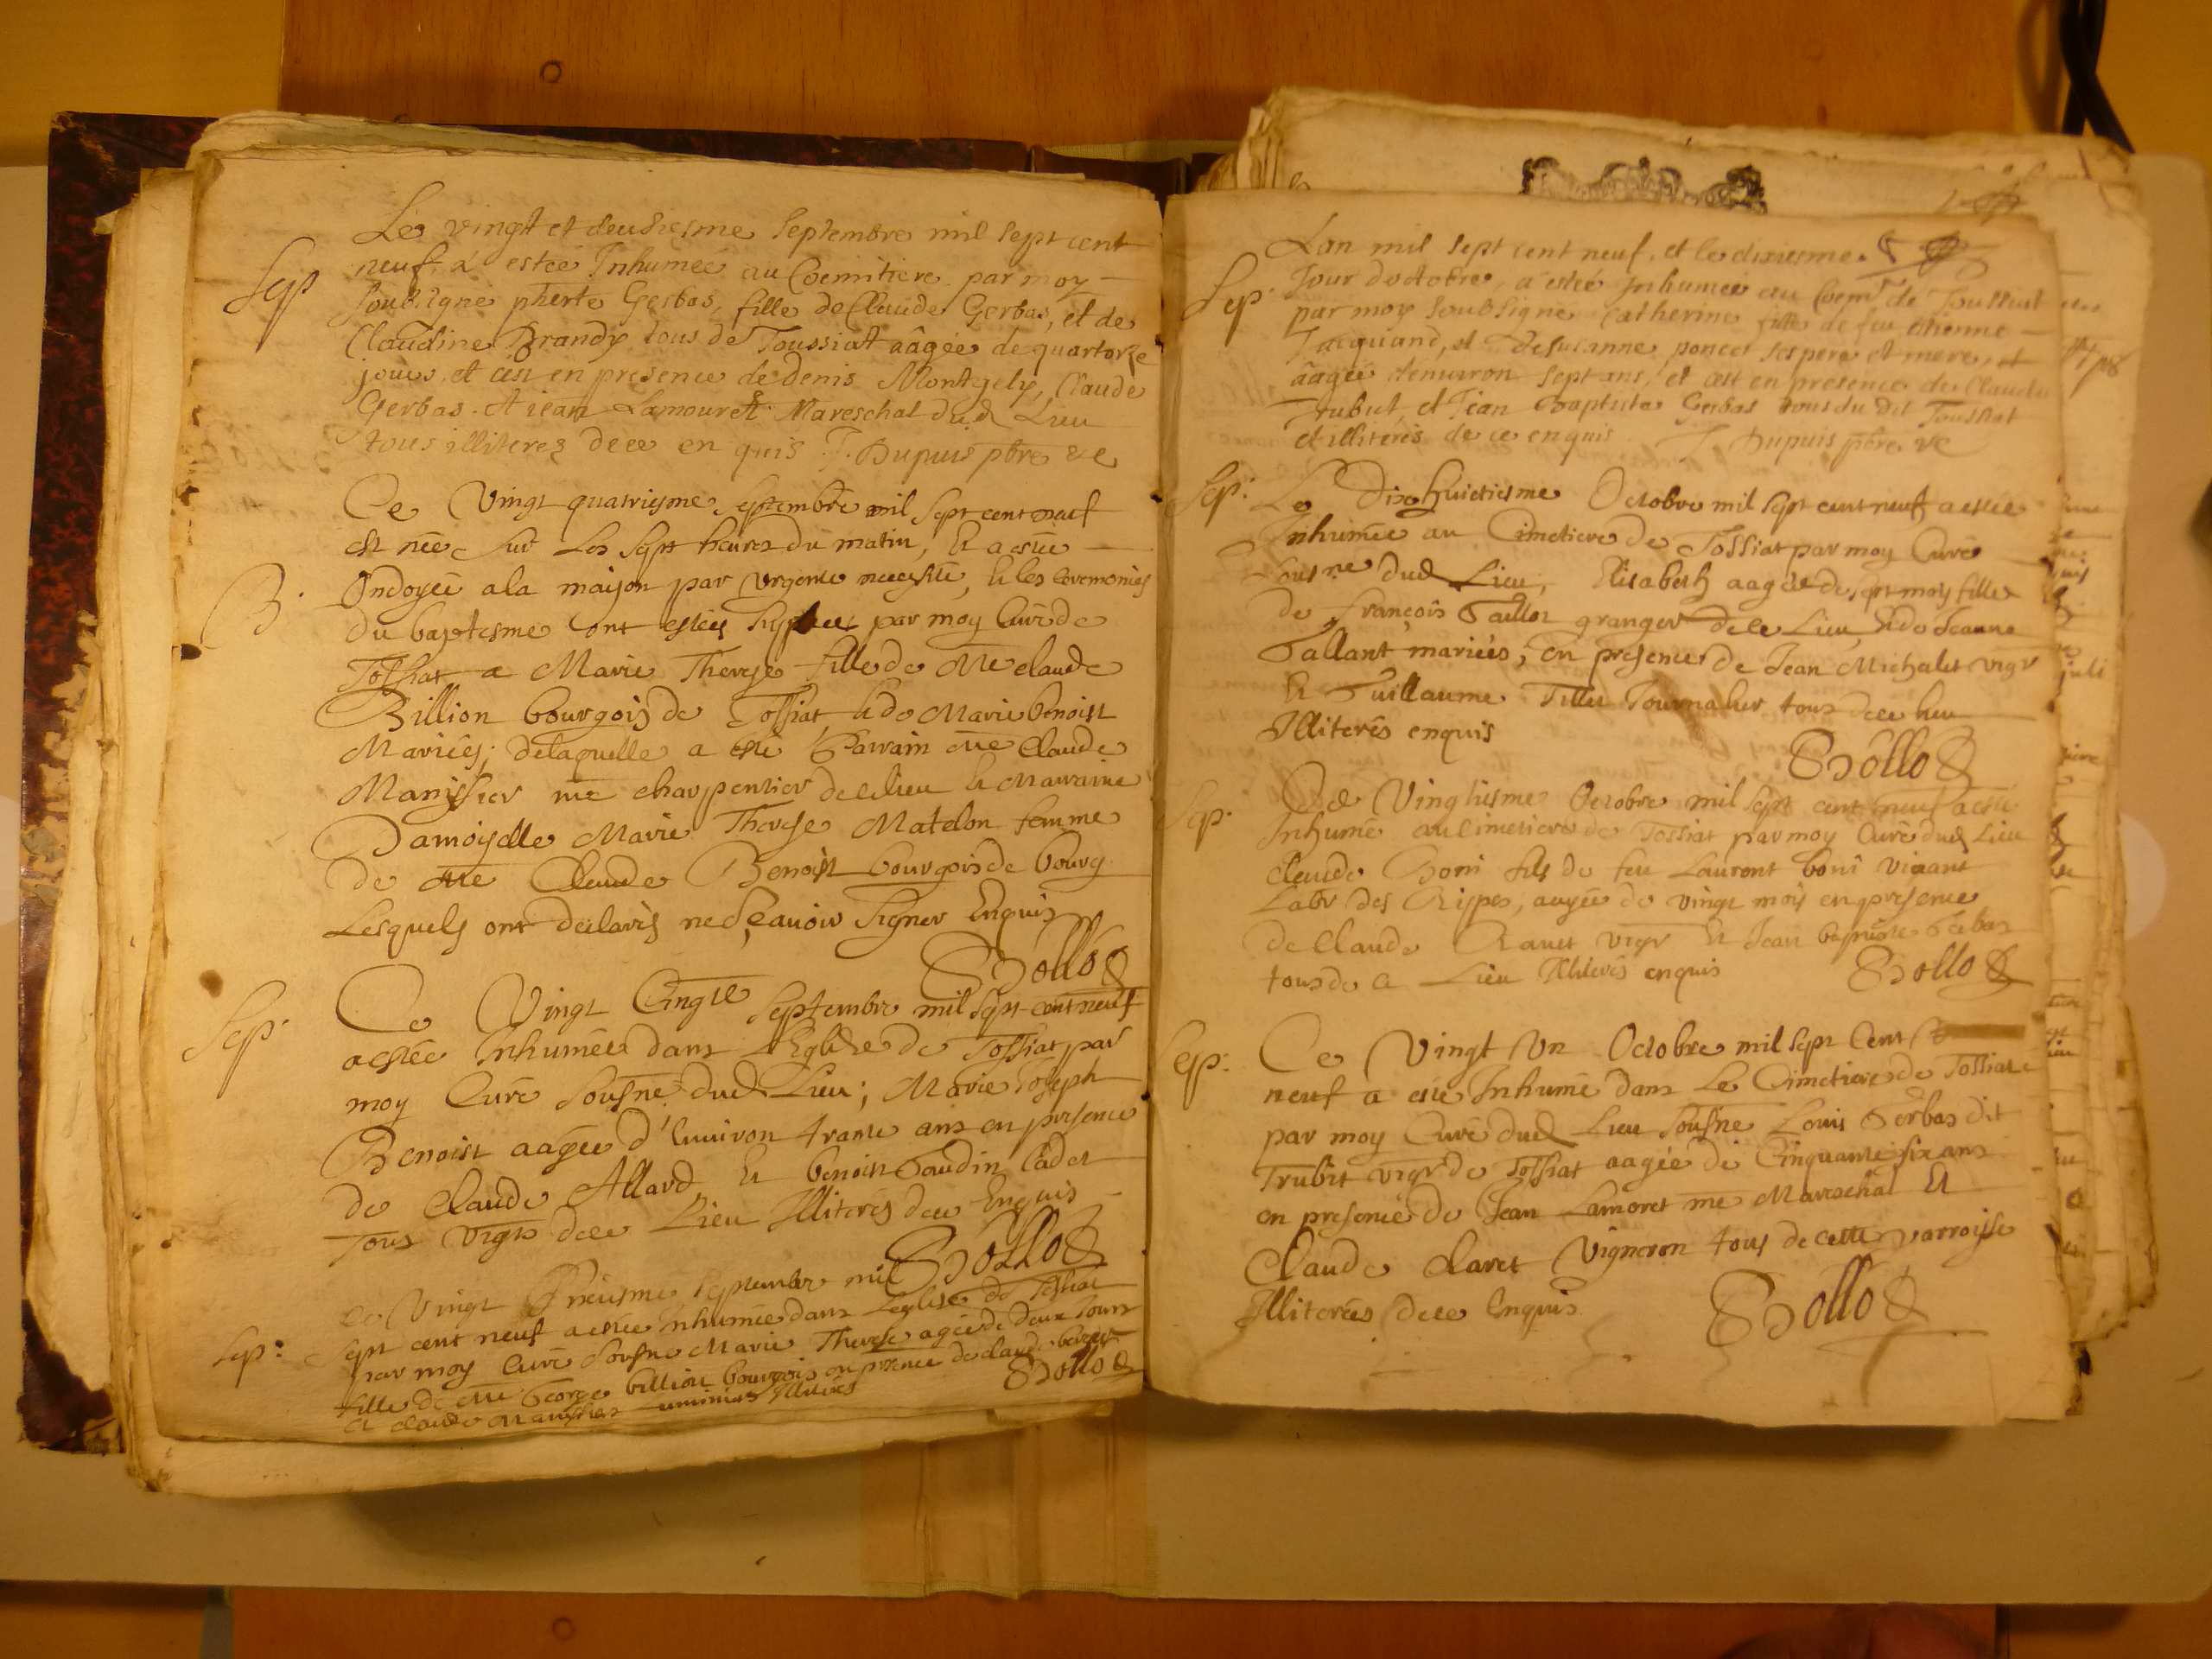 Le vingt et deusiesme Septembre mil sept cent
Sep
neuf a estée Inhumée au Coemitiere par moy
soubsigné pherte Gerbas, fille de Claude Gerbas, et de
Claudine Brandy tous de Toussiat aâgée de quartorze
jours, et c'est en presence de denis Montgely, Claude
Gerbas. et iean Lamouret Mareschal dud Lieu
tous illiterez de ce en quis J. Dupuis pbre ve
Ce Vingt quatriesme Septembre mil Sept cent neuf
est née sur Les Sept heures du matin, et a esté
B.
Ondoyée a la maison par urgente necessité, et les ceremonies
du baptesme ont estées supplées par moy Curé de
Tossiat a Marie Therese fille de Me claude
Billion bourgois de Tossiat et de Marie benoist
Mariés; de laquelle a esté Parrain Me Claude
Manissier me charpentier de ce lieu et Marraine
Damoiselle Marie Therese Matelon femme
de Me Claude Benoist bourgois de bourg
Lesquels ont declarés ne sçauoir signer Enquis
Bollo
Sep.
Ce Vingt Cinqie Septembre mil Sept cent neuf
a estée Inhumée dans L'Eglize de Tossiat par
moy Curé Sousné dud Lieu; Marie Joseph
Benoist aagée d'enuiron trante ans en presence
de Claude Allard et benoist Gaudin Cadet
Tous vigrs de ce Lieu Illiterés de ce Enquis
Bollo
Sep:
Ce Vingt Septembre mil
Sept cent neuf a estée Inhumée dans Leglise de Tossiat
par moy Curé Sousné Marie Therese agée de deux Jours
fille de Me George billion bourgois en presence de claude
et claude Manissier Illiterés
Bollo
Lan mil sept cent neuf, et le dixiesme
Sep.
Jour d'octobre, a estée Inhumée au Coemre de Toussiat
par moy soubsigné Catherine fille de feu etienne
Jacquand, et de susanne poncet ses pere et mere, et
aâgée denuiron sept ans, et c'est en presence de Claude
Trubit, et Jean Baptiste Gerbas tous du dit Toussiat
et illiterés de ce enquis. J. Dupuis pbre ve
Sep:
Le Dixhuictiesme Octobre mil Sept cent neuf a estée
Inhumée au Cimetiere de Tossiat par moy Curé
Sousné dud Lieu, Elisabeth aagée de Sept moys fille
de françois Paillor granger de ce Lieu et de Jeanne
Pallant mariés, en presence de Jean Michalet vigr
et Guillaume Tillet tous de ce lieu
Illiterés enquis
Bollo
Sep.
Le Vingtiesme Octobre mil Sept cent neuf a esté
Inhumé au cimetiere de Tossiat par moy Curé dud Lieu
claude Boni fils de feu Laurent boni viuant
Labr des Rippes, aagée de vingt moys en presence
de Claude Rauet vigr et Jean baptiste Gerbas
tous de ce Lieu Illiterés enquis
Bollo
Sep:
Ce Vingt Un Octobre mil Sept Cent
neuf a esté Inhumé dans Le Cimetiere de Tossiat
par moy Curé dud Lieu Sousné Louis Gerbas dit
Trubit vigr de Tossiat aagée de Cinquante six ans
en presence de Jean Lamoret me Mareschal et
Claude Claret Vigneron tous de cette parroisse
Illiterées de ce Enquis
Bollo